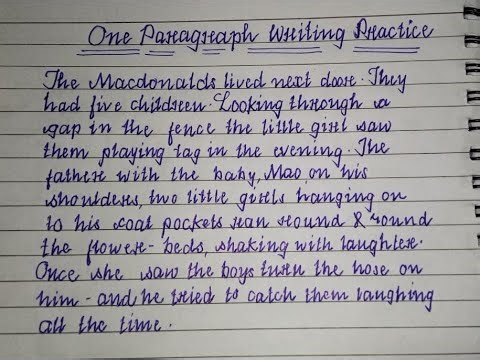 One Paragraph Writing Practice
The Macdonalds lived next door. They
had five children. Looking through a
gap in the fence the little girl saw
them playing tag in the evening. The
father with the baby, Mao on his
shoulders, two little girls hanging on
to his coat pockets ran round & round
the flower-beds, shaking with laughter.
Once she saw the boys turn the hose on
him - and he tried to catch them laughing
all the time.